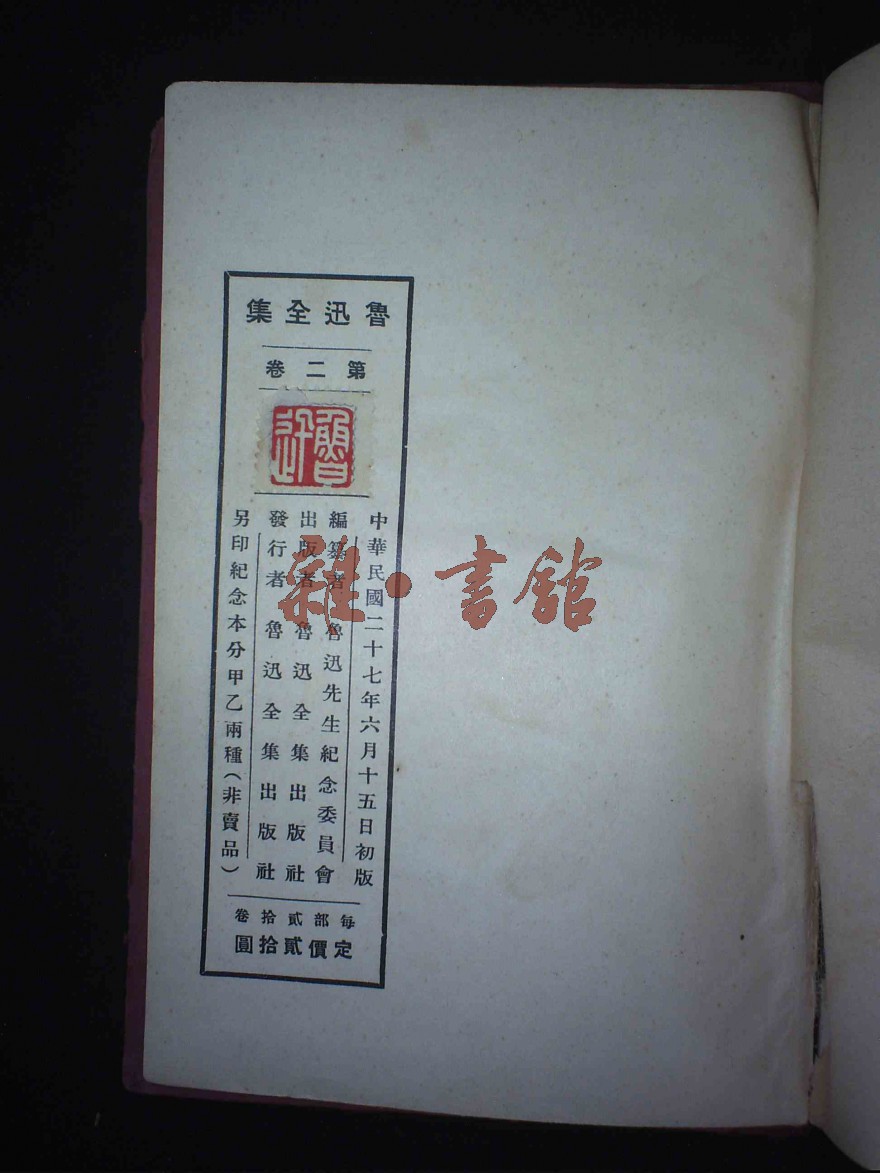 魯迅全集
第二卷
魯迅
中華民國二十七年六月十五日初版
編纂者 魯迅先生紀念委員會
出版者 魯迅全集出版社
發行者 魯迅全集出版社
另印紀念本分甲乙兩種(非賣品)
每部貳拾卷
定價貳拾圓
雜·書館